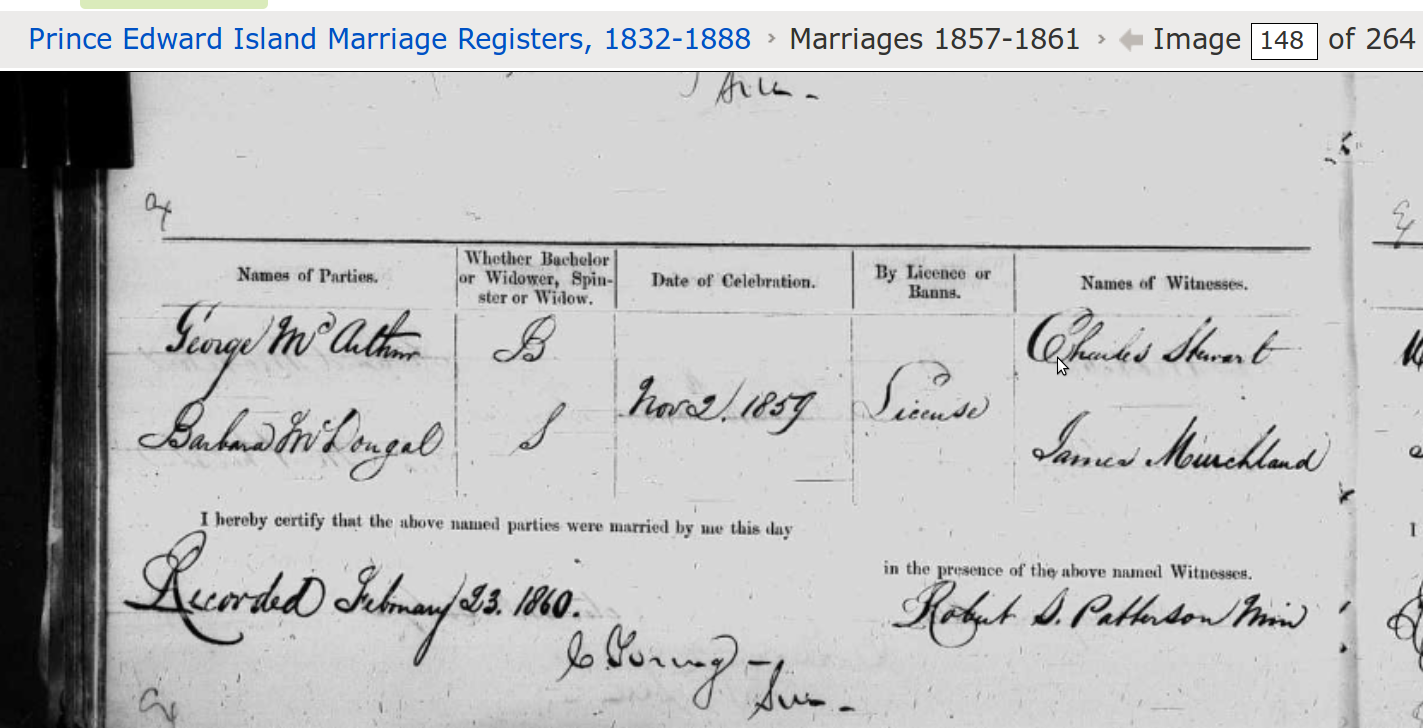 Prince Edward Island Marriage Registers, 1832-1888 › Marriages 1857-1861 › Image 148 of 264
Names of Parties.
Whether Bachelor
or Widower, Spin-
ster or Widow.
Date of Celebration.
By Licence or
Banns.
Names of Witnesses.
George McArthur
B
Charles Stewart
Nov 2. 1859
License
Barbara McDougal
S
James Murchland
I hereby certify that the above named parties were married by me this day
in the presence of the above named Witnesses.
Recorded February 23. 1860.
Robert S. Patterson Min
C Young -